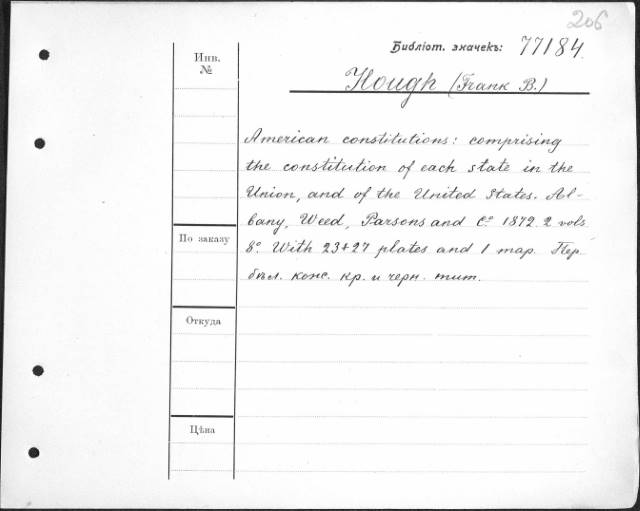 206
Библіот. значекъ: 77184.
Инв.
№
Hough (Frank B.)
American constitutions: comprising
the constitution of each state in the
Union, and of the United States. Al-
bany, Weed, Parsons and Cº 1872. 2 vols
8º. With 23+27 plates and 1 map. Пер.
По заказу
бѣл. конс. кр. и черн. тит.
Откуда
Цѣна